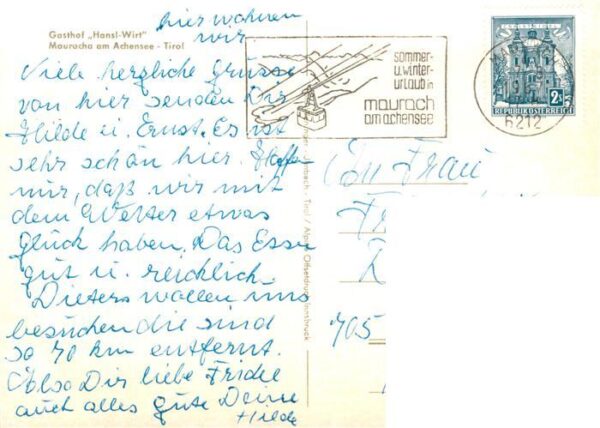 hier wohnen
wir
Gasthof „Hansl-Wirt"
Maurach am Achensee - Tirol
Viele herzliche Grüsse
von hier senden Dir
Hilde u. Ernst. Es ist
sehr schön hier. Hoffen
wir, daß wir mit
dem Wetter etwas
Glück haben. Das Essen
gut u. reichlich.
Dieters wollen uns
besuchen die sind
so 70 km entfernt.
Also Dir liebe Friedel
auch alles gute Deine
Hilde
sommer-
u. winter-
urlaub in
maurach
am achensee
2S
REPUBLIK ÖSTERREICH
6212
Tirol / Alpina Offsetdruck Innsbruck
Frau
705